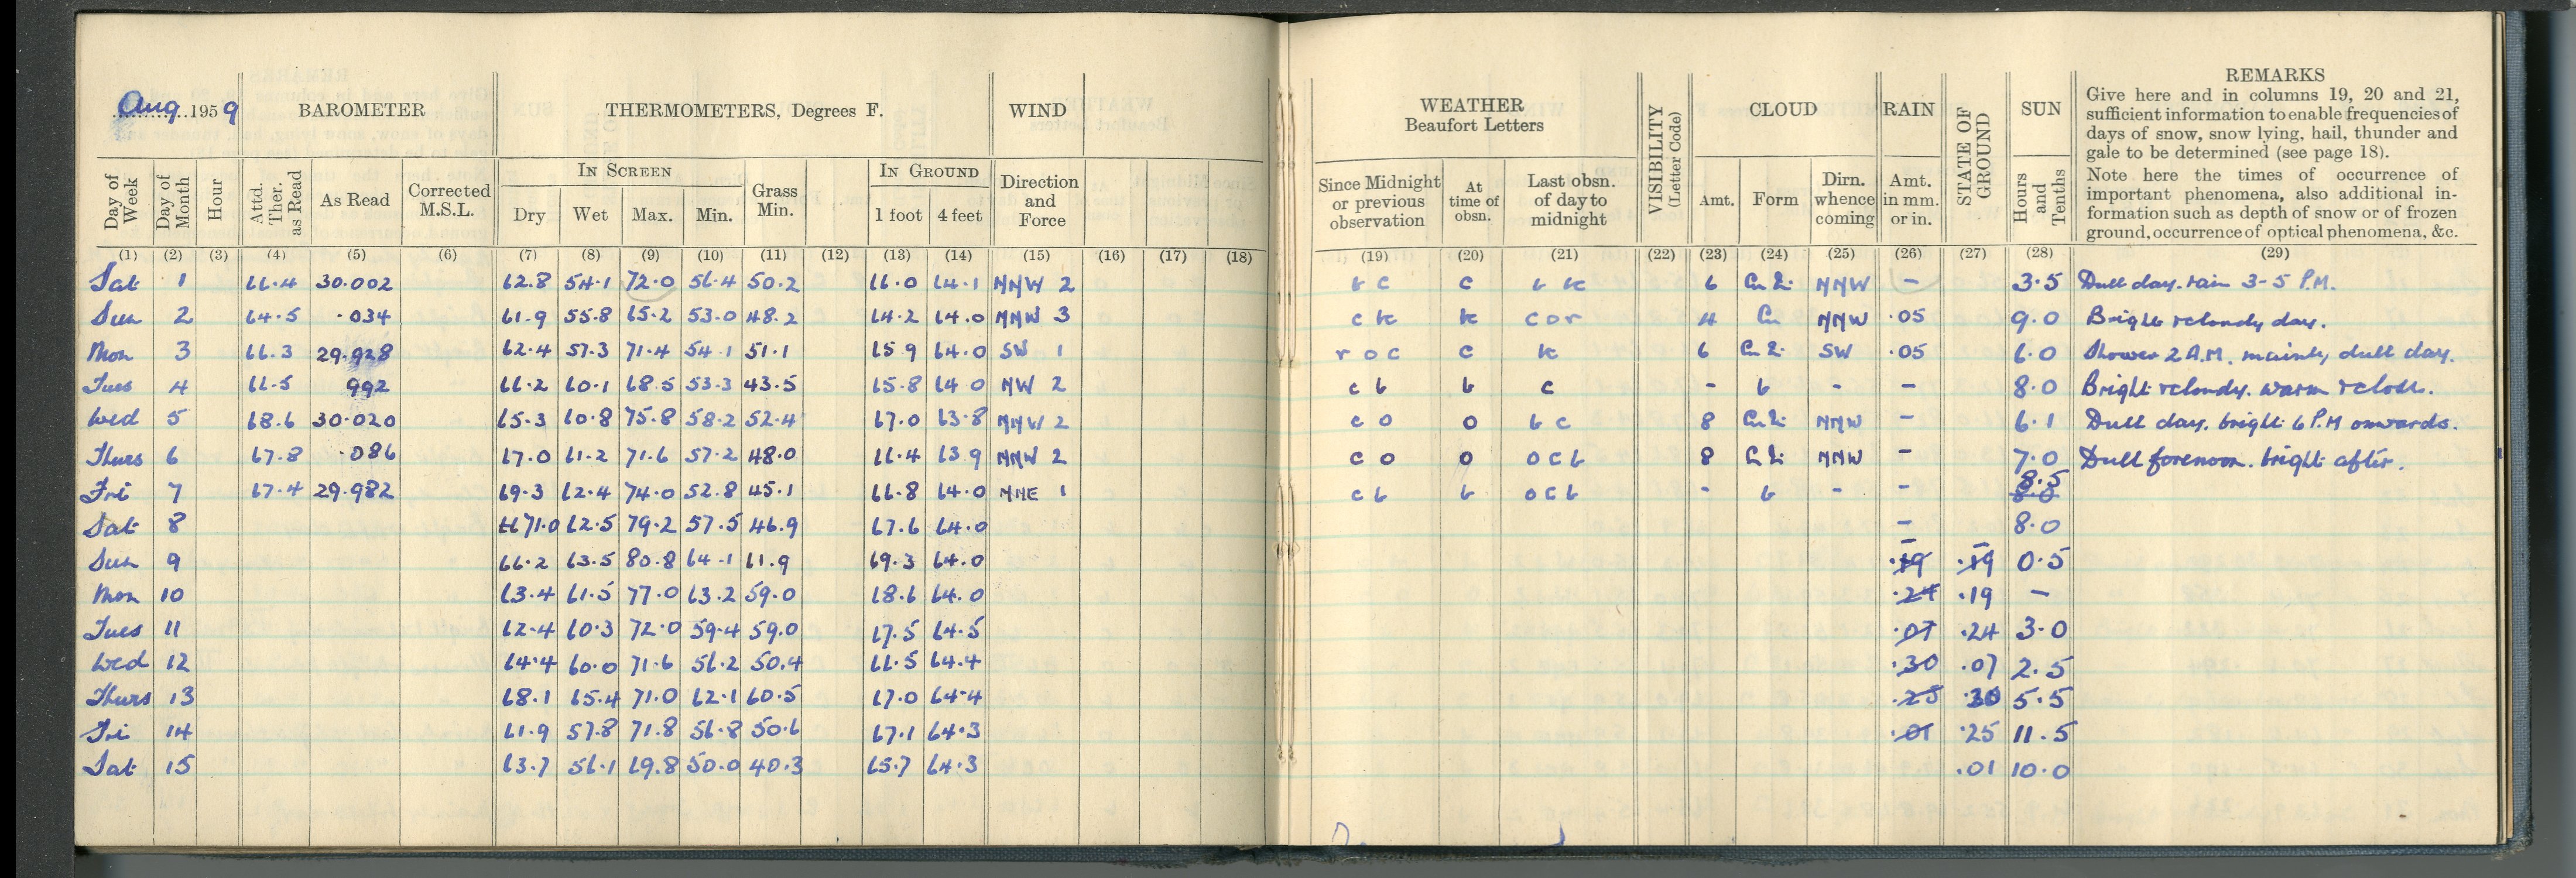 Aug 1959 BAROMETER THERMOMETERS, Degrees F. WIND WEATHER Beaufort Letters VISIBILITY (Letter Code) CLOUD RAIN STATE OF GROUND SUN REMARKS
Give here and in columns 19, 20 and 21,
sufficient information to enable frequencies of
days of snow, snow lying, hail, thunder and
gale to be determined (see page 18).
Note here the times of occurrence of
important phenomena, also additional in-
formation such as depth of snow or of frozen
ground, occurrence of optical phenomena, &c.
IN SCREEN IN GROUND
Day of Week Day of Month Hour Attd. Ther. as Read As Read Corrected M.S.L. Dry Wet Max. Min. Grass Min. 1 foot 4 feet Direction and Force Since Midnight or previous observation At time of obsn. Last obsn. of day to midnight Amt. Form Dirn. whence coming Amt. in mm. or in. Hours and Tenths
(1) (2) (3) (4) (5) (6) (7) (8) (9) (10) (11) (12) (13) (14) (15) (16) (17) (18) (19) (20) (21) (22) (23) (24) (25) (26) (27) (28) (29)
Sat 1 66.4 30.002 62.8 54.1 72.0 56.4 50.2 66.0 64.1 NNW 2 b c c 6 NNW - 3.5 Dull day. rain 3-5 P.M.
Sun 2 64.5 .034 61.9 55.8 65.2 53.0 48.2 64.2 64.0 NNW 3 c o r 4 Cu NNW .05 9.0 Bright & cloudy day.
Mon 3 66.3 29.928 62.4 57.3 71.4 54.1 51.1 65.9 64.0 SW 1 r o c c 6 SW .05 6.0 Shower 2 A.M. mainly dull day.
Tues 4 66.5 992 66.2 60.1 68.5 53.3 43.5 65.8 64.0 NW 2 c b b c - b - - 8.0 Bright & cloudy. warm & close.
Wed 5 68.6 30.020 65.3 60.8 75.8 58.2 52.4 67.0 63.8 NNW 2 c o o b c 8 NNW - 6.1 Dull day. bright 6 P.M onwards.
Thurs 6 67.8 .086 67.0 61.2 71.6 57.2 48.0 66.4 63.9 NNW 2 c o o o c b 8 NNW - 7.0 Dull forenoon. bright after.
Fri 7 67.4 29.982 69.3 62.4 74.0 52.8 45.1 66.8 64.0 NNE 1 c b b o c b - b - - 8.5 8.0
Sat 8 71.0 62.5 79.2 57.5 46.9 67.6 64.0 - 8.0
Sun 9 66.2 63.5 80.8 64.1 61.9 69.3 64.0 .19 - .19 - 0.5
Mon 10 63.4 61.5 77.0 63.2 59.0 68.6 64.0 .24 .19 -
Tues 11 62.4 60.3 72.0 59.4 59.0 67.5 64.5 .07 .24 3.0
Wed 12 64.4 60.0 71.6 56.2 50.4 66.5 64.4 .30 .07 2.5
Thurs 13 68.1 65.4 71.0 62.1 60.5 67.0 64.4 .25 .30 5.5
Fri 14 61.9 57.8 71.8 56.8 50.6 67.1 64.3 .01 .25 11.5
Sat 15 63.7 56.1 69.8 50.0 40.3 65.7 64.3 .01 10.0